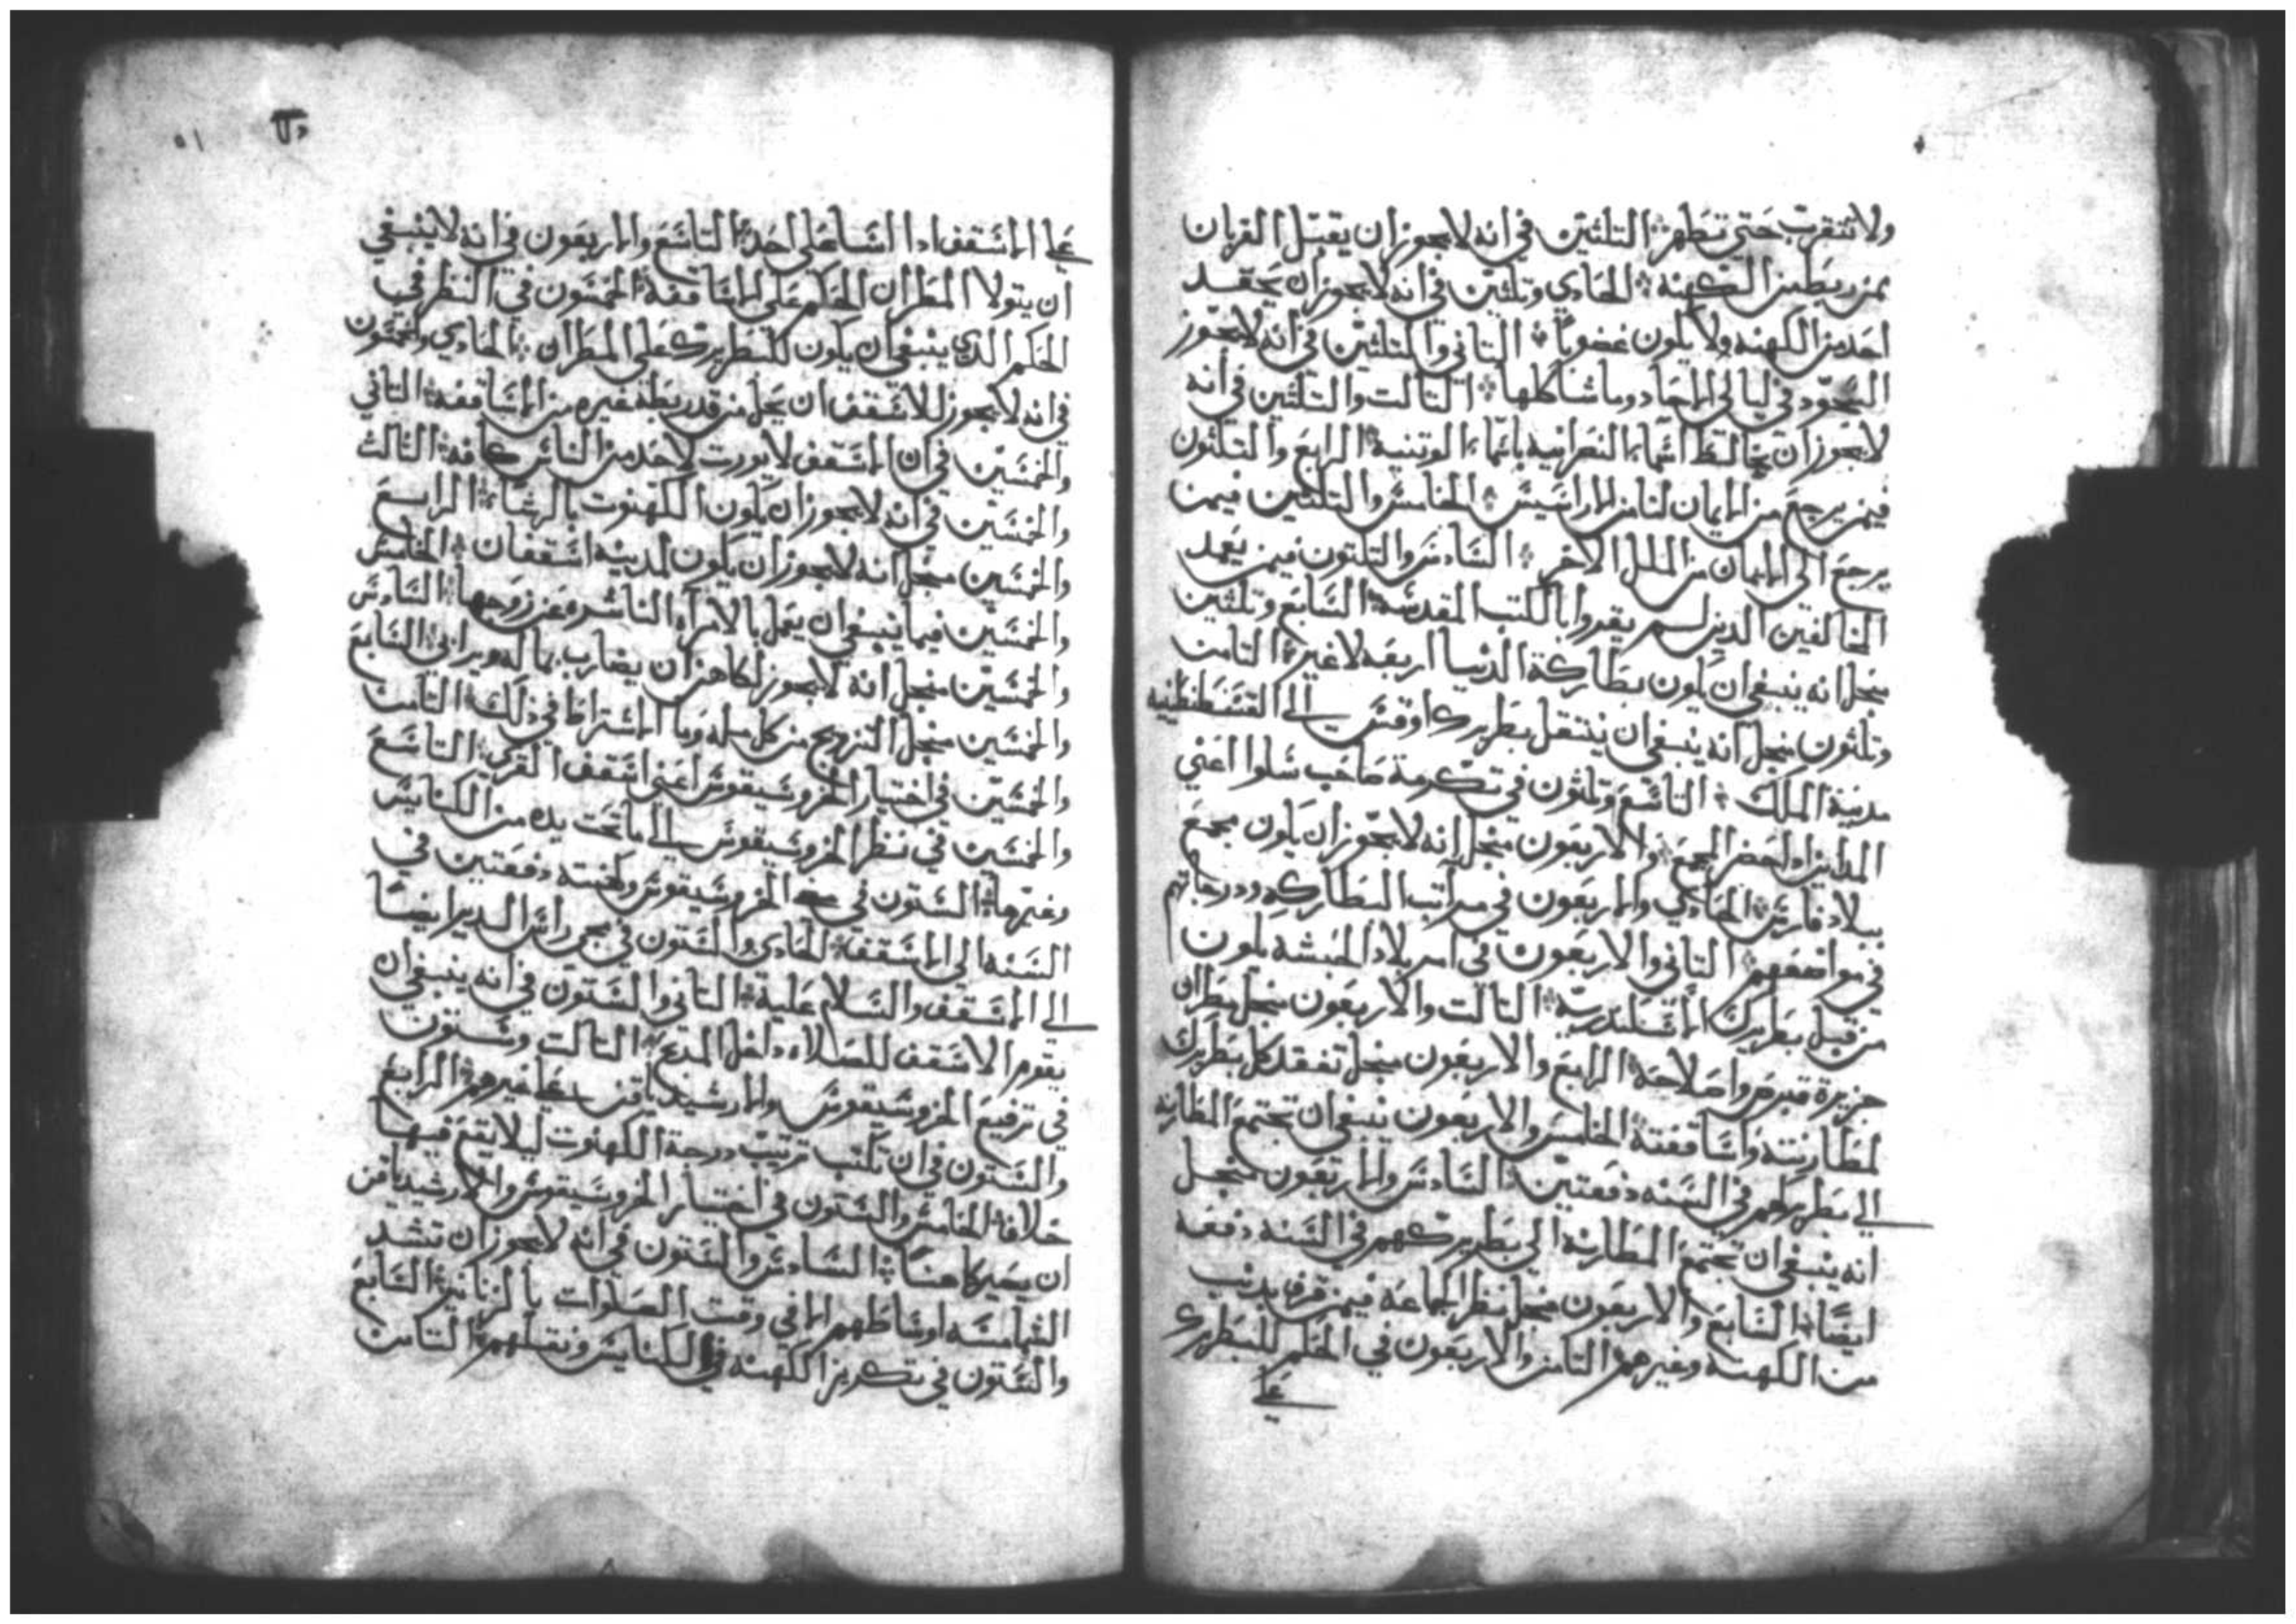 ولا تتقرب حتى تطهر ۞ التلثين في انه لا يجوز ان يقبل القربان
ممن ربطمن الكهنه ۞ الحادي وتلثين في انه لا يجوز ان يحقد
احد من الكهنه ولا يكون غضوبا ۞ التاني والتلثين في انه لا يجوز
السجود في ليالي الاحاد وما شاكلها ۞ التالت والتلثين في انه
لا يجوز ان يخالط اسماء النصرانيه باسماء الوتنيه ۞ الرابع والتلثون
فيمن يرجع من الايمان لنا من الاراسيس ۞ الخامس والتلثين فيمن
يرجع الى الايمان من الملل الاخر ۞ السادس والتلثون فيمن يعمد
المخالفين الدين لم يقروا بالكتب المقدسه ۞ السابع وتلثين
منجل انه ينبغي ان يكون بطاركة الدنيا اربعه لاغير ۞ التامن
وتلثون منجل انه ينبغي ان ينتقل بطريرك افسس الى القسطنطينيه
مدينة الملك ۞ التاسع وتلثون في تكرمة صاحب سلوا اعني
المداين ادا حضر المجمع ۞ والاربعون منجل انه لا يجوز ان يكون مجمع
ببلاد فارس ۞ الحادي والاربعون في مراتب البطاركه ودرجاتهم
في مواضعهم ۞ التاني والاربعون في امر بلاد الحبشه يكون
من قبل بطريرك الاسكندريه ۞ التالت والاربعون منجل مطران
جزيرة قبرص واصلاحه ۞ الرابع والاربعون منجل تفقد كل بطريرك
لمطارنته واساقفته ۞ الخامس والاربعون ينبغي ان تجتمع المطارنه
الى بطريركهم في السنه دفعتين ۞ السادس والاربعون منجل
انه ينبغي ان تجتمع المطارنه الى بطريركهم في السنه دفعه
ايضا ۞ السابع والاربعون منجل نظر الجماعه فيمن قرف بدنب
من الكهنه وغيرهم ۞ التامن والاربعون في الحكم للبطريرك
على
٥١
على الاسقف ادا اسا على احد ۞ التاسع والاربعون في انه لا ينبغي
ان يتولا المطران الحكم على الاساقفه ۞ الخمسون في النظر في
الحكم الدي ينبغي ان يكون للبطريرك على المطران ۞ الحادي والخمسون
في انه لا يجوز للاسقف ان يحل من قد ربطه غيره من الاساقفه ۞ التاني
والخمسين في ان الاسقف لا يورت لاحد من الناس كافه ۞ الثالث
والخمسين في انه لا يجوز ان يكون الكهنوت بالرشا ۞ الرابع
والخمسين منجل انه لا يجوز ان يكون لمدينه اسقفان ۞ الخامس
والخمسين فيما ينبغي ان يعمل بالامراه الناشره عن زوجها ۞ السادس
والخمسين منجل انه لا يجوز لكاهن ان يضارب بماله ويرابي ۞ السابع
والخمسين منجل التزويج من كل مله وما الاشتراط في ذلك ۞ التامن
والخمسين في اختيار الخروسيقوس اعني اسقف القري ۞ التاسع
والخمسين في نظر الخروسيقوس الى ما تحت يده من الكنايس
وغيرها ۞ الستون في الخروسيقوس وكهنته دفعتين في
السنه الى الاسقف ۞ الحادي والستون في مجي راس الدير ايضا
الى الاسقف والسلام عليه ۞ التاني والستون في انه ينبغي ان
يقوم الاسقف للصلاه داخل المدبح ۞ التالت وستون
في ترفيع الخروسيقوس والارشيدياقن على غيرهم ۞ الرابع
والستون في ان تكتب ترتيب درجة الكهنوت ليلا يقع فيها
خلاف ۞ الخامس والستون في اختيار الخروسيقوس والارشيدياقن
ان يصير كاهنا ۞ السادس والستون في انه لا يجوز ان تشد
الشمامسه اوساطهم الا في وقت الصلوات بالزنانير ۞ السابع
والستون في تكريز الكهنه في الكنايس ونقلهم ۞ التامن